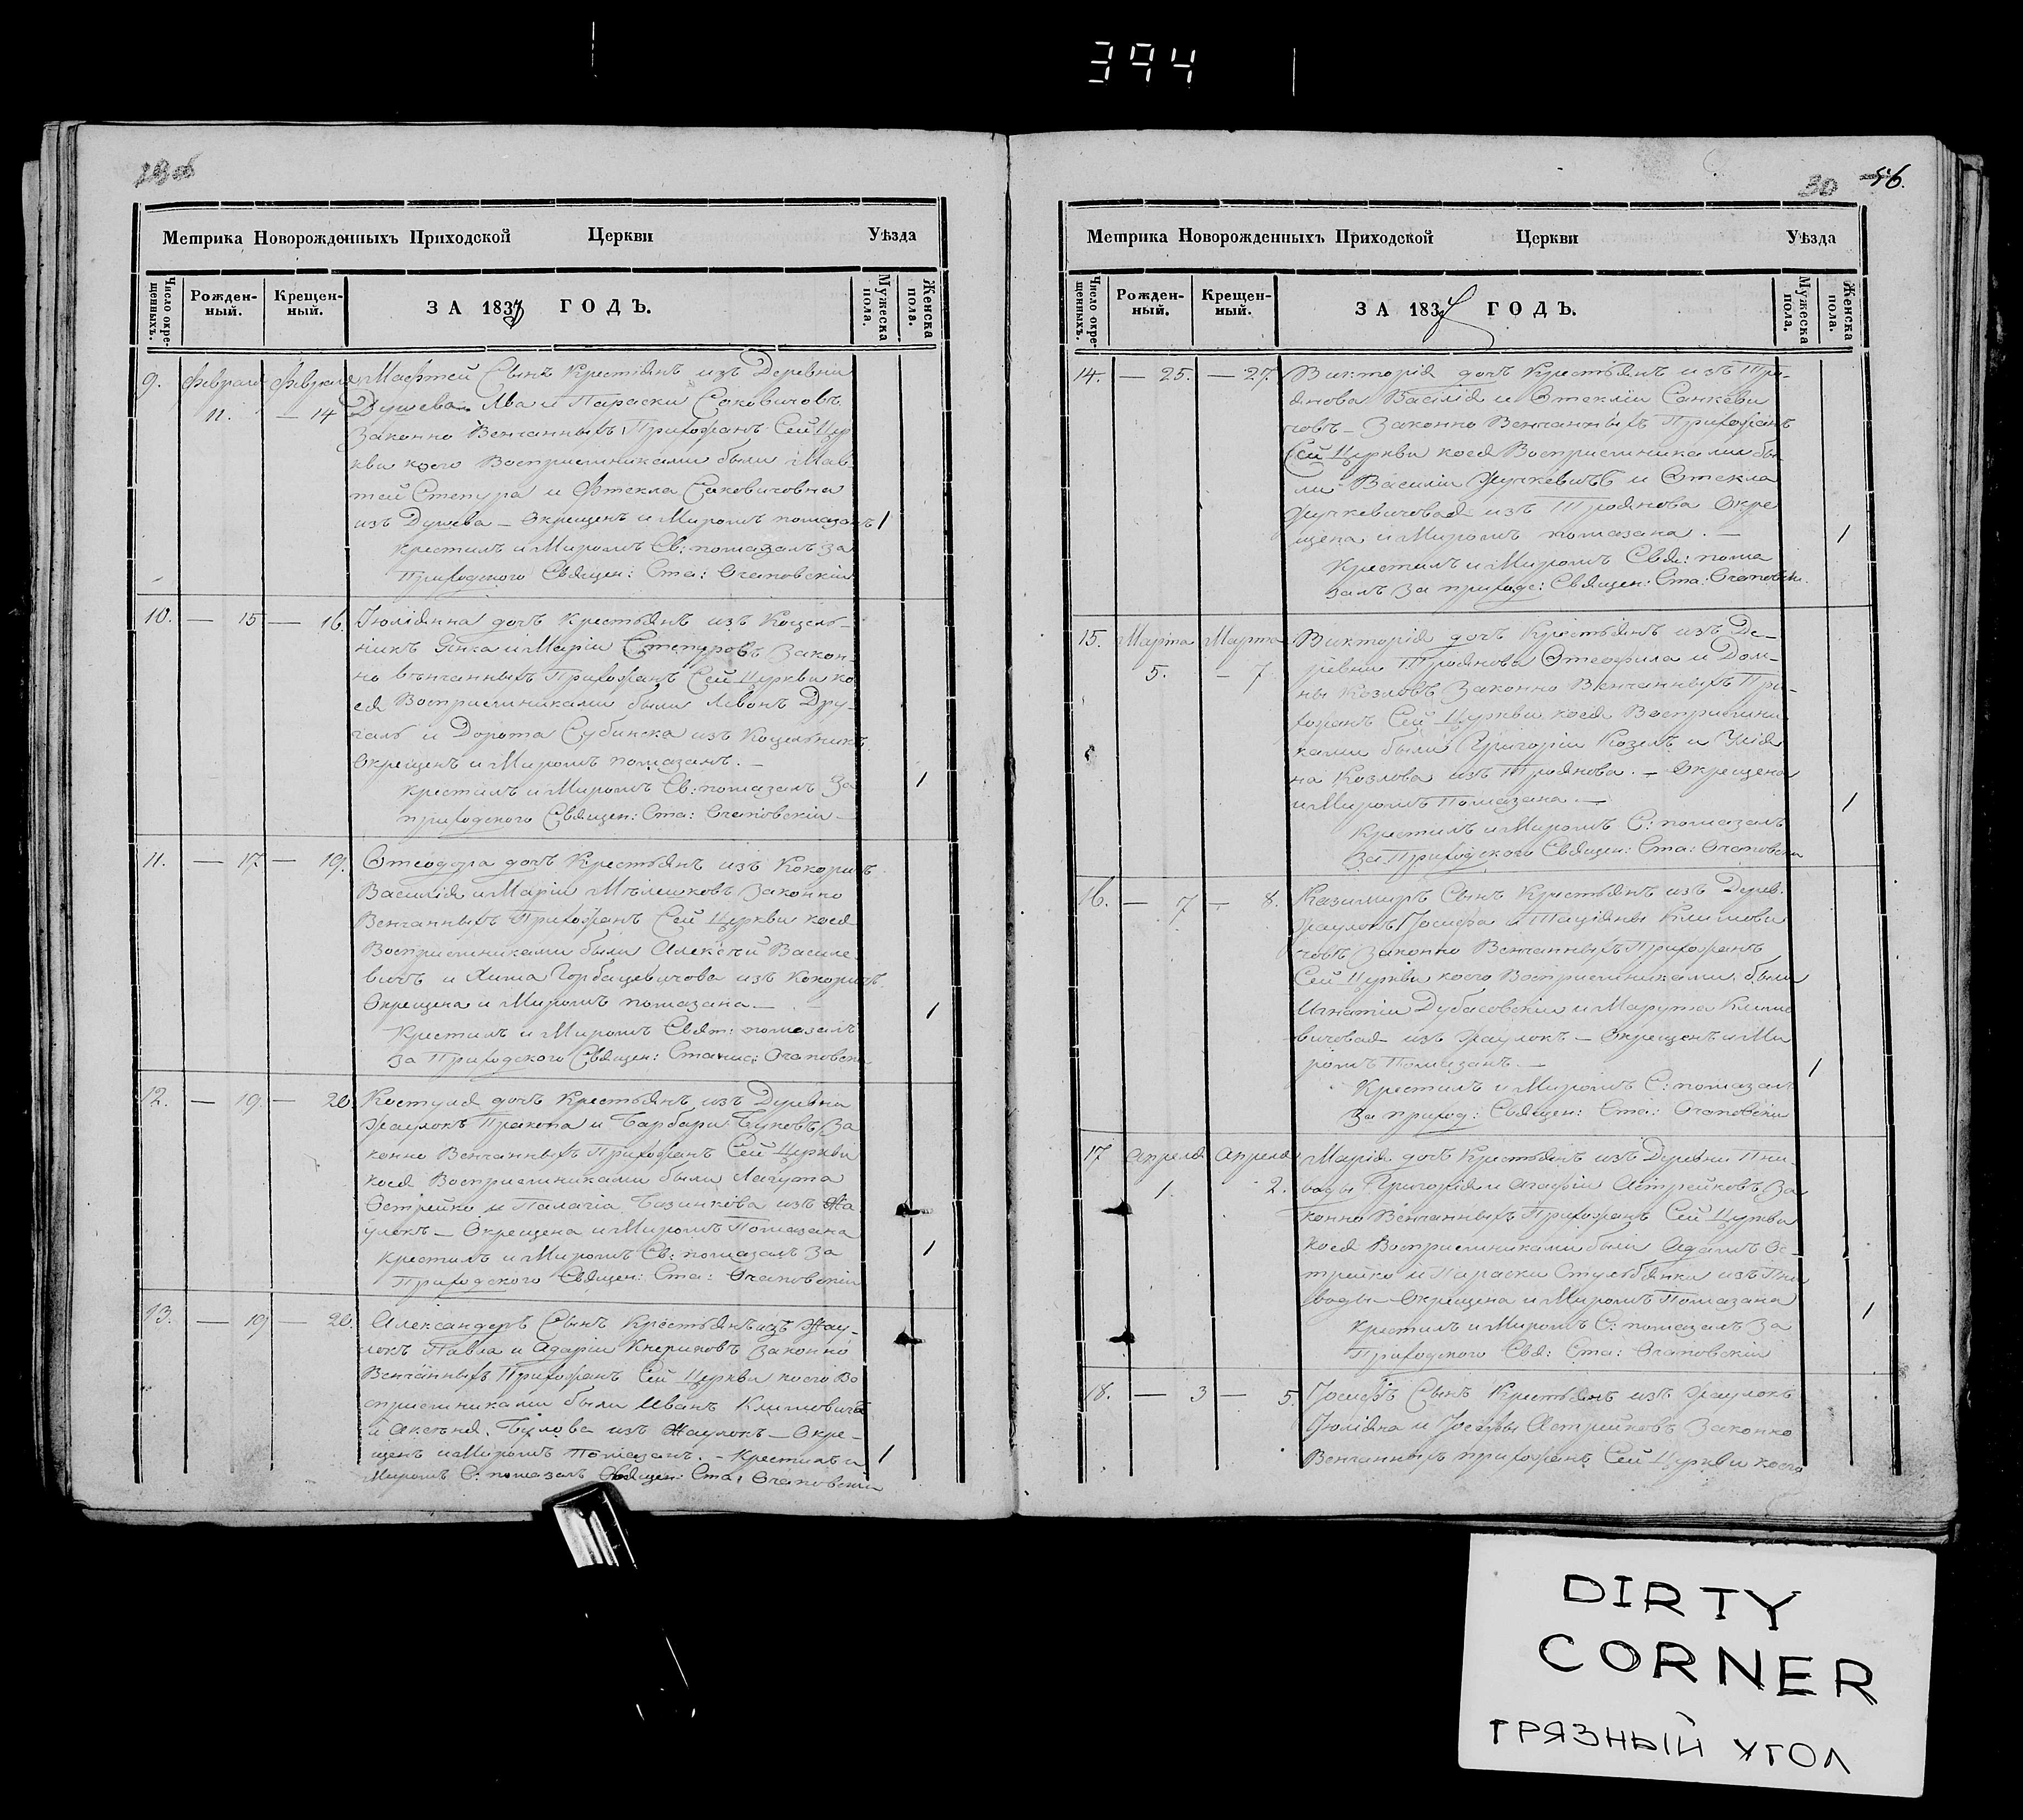 394
30
56.
Метрика Новорожденныхъ Приходской Церкви Уѣзда
Число окрещенныхъ.
Рожденный.
Крещенный.
ЗА 1837 ГОДЪ.
Мужеска пола.
Женска пола.
9. Февраля Февраля Маѳтей Сынъ Крестьянъ изъ Деревни
11. — 14 Душева Льва и Параски Саковичовъ
Законно Венчанныхъ Прихожанъ Сей Цер
кви коего Восприемниками были Мав
тей Степура и Фтекла Саковичовна
изъ Душева — Окрещенъ и Миромъ помазанъ 1
Крестилъ и Миромъ Св: помазалъ За
Приходского Священ: Ста:
10. — 15 — 16. Юлiянна дочъ Крестьянъ изъ Коцель-
никъ Янка и Марiи Степуровъ Закон-
но вѣнчанныхъ Прихожанъ Сей Церкви ко
ея Восприемниками были Левонъ Дру-
галь и Дорота Субинска изъ Коцельникъ
Окрещенъ и Миромъ помазанъ. —
Крестилъ и Миромъ Св: помазалъ За 1
приходского Священ: Ста:
11. — 17 — 19. Ѳтеодора дочъ Крестьянъ изъ Кокоричъ
Василiя и Марiи Мѣлешковъ Законно
Венчанныхъ Прихожанъ Сей Церкви коея
Восприемниками были Алексѣй Василе-
вичъ и Хима Горбацевичова изъ Кокоричъ.
Окрещена и Миромъ помазана — 1
Крестилъ и Миромъ Свят: помазалъ
За Приходского Свящeн: Станис:
12. — 19. — 20. Костуля дочъ Крестьянъ изъ Деревни
Жаулокъ Пракопа и Барбари За
конно Венчанныхъ Прихожанъ Сей Церкви
коея Восприемниками были
Острейко и Палагiя изъ Жа
улокъ — Окрещена и Миромъ Помазана
Крестилъ и Миромъ Св: помазалъ За 1
Приходского Священ: Ста:
13. — 19 — 20. Александеръ Сынъ Крестьянъ изъ Жау-
локъ Павла и Адарiи Законно
Венчанныхъ Прихожанъ Сей Церкви коего Во
сприемниками были Иванъ Климовичъ
и изъ Жаулокъ — Окре-
щенъ и Миромъ Помазанъ. — Крестилъ и 1
Миромъ С: помазалъ Священ: Ста:
Метрика Новорожденныхъ Приходской Церкви Уѣзда
Число окрещенныхъ.
Рожденный.
Крещенный.
ЗА 1837 ГОДЪ.
Мужеска пола.
Женска пола.
14. — 25. — 27. Викторiя дочъ Крестьянъ изъ Тро-
янова Васiлiя и Ѳтеклiи Санкеви
човъ — Законно Венчанныхъ Прихожанъ
Сей Церкви коея Восприемниками бы
ли Василiи и Ѳтекла
изъ Троянова Окре
щена и Миромъ помазана. — 1
Крестилъ и Миромъ Свя: пома
залъ За приходс: Священ: Ста:
15. Марта Марта Викторiя дочъ Крестьянъ изъ Де-
5. — 7 ревни Троянова Ѳтеофила и Дом-
ны Козловъ Законно Венчанныхъ При-
хожанъ Сей Церкви коея Восприемни
ками были Григорiи Козелъ и Улiя
на Козлова изъ Троянова. — Окрещена
и Миромъ Помазана — 1
Крестилъ и Миромъ С: помазалъ
За Приходского Священ: Ста:
16. — 7 — 8. Казимиръ Сынъ Крестьянъ изъ Дерев.
Жаулокъ Iосифа и Тацiяны Климови
човъ Законно Венчанныхъ Прихожанъ
Сей Церкви коего Восприемниками были
Игнатiи Дубасовскiи и Марута Климо
вичовая изъ Жаулокъ — Окрещенъ и Ми
ромъ Помазанъ — 1
Крестилъ и Миромъ С: помазалъ
За приход: Священ: Ста:
17 Апреля Апреля Марiя дочъ Крестьянъ изъ Деревни Пни-
1. 2. воды Григорiя и Агафiи Астрейковъ За
конно Венчанныхъ Прихожанъ Сей Церкви
коея Восприемниками были Адамъ Ос-
трейко и Параски изъ Пни
воды — Окрещена и Миромъ Помазана 1
Крестилъ и Миромъ С: помазалъ За
Приходского Свя: Ста:
18. — 3 — 5. Iосифъ Сынъ Крестьянъ изъ Жаулокъ
Юлiяна и Астрейковъ Законно
Венчанныхъ прихожанъ Сей Церкви коего
DIRTY
CORNER
ГРЯЗНЫЙ УГОЛ